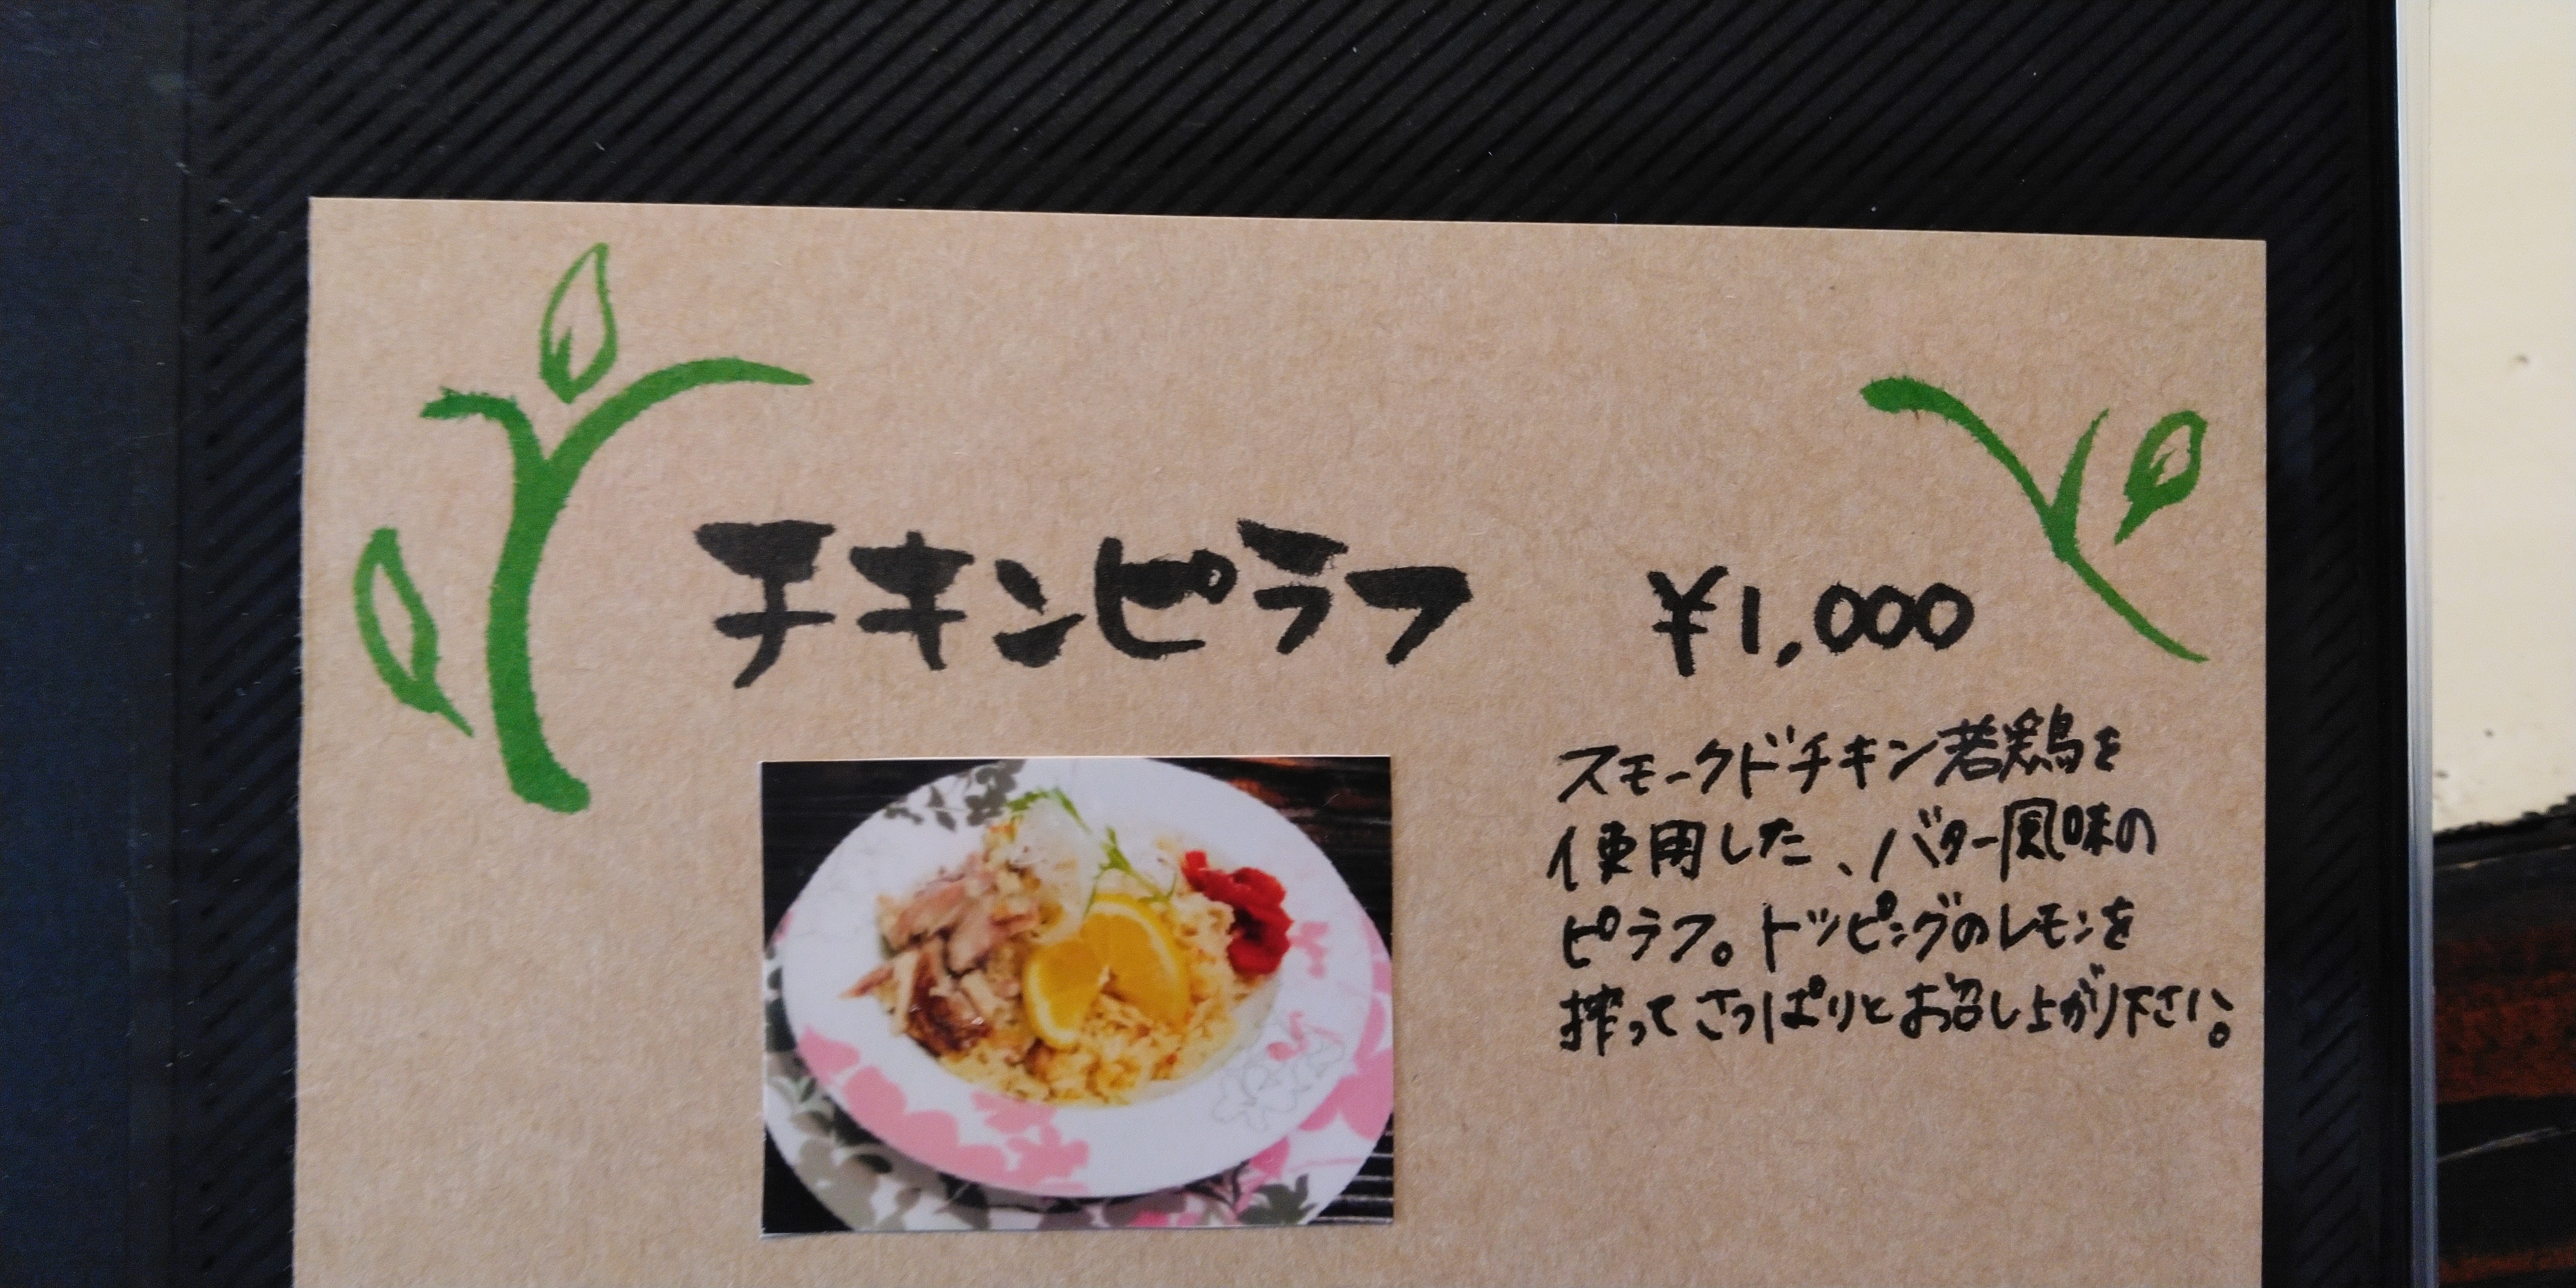 チキンピラフ ¥1,000
スモークドチキン若鶏を
使用した、バター風味の
ピラフ。トッピングのレモンを
搾ってさっぱりとお召し上がり下さい。